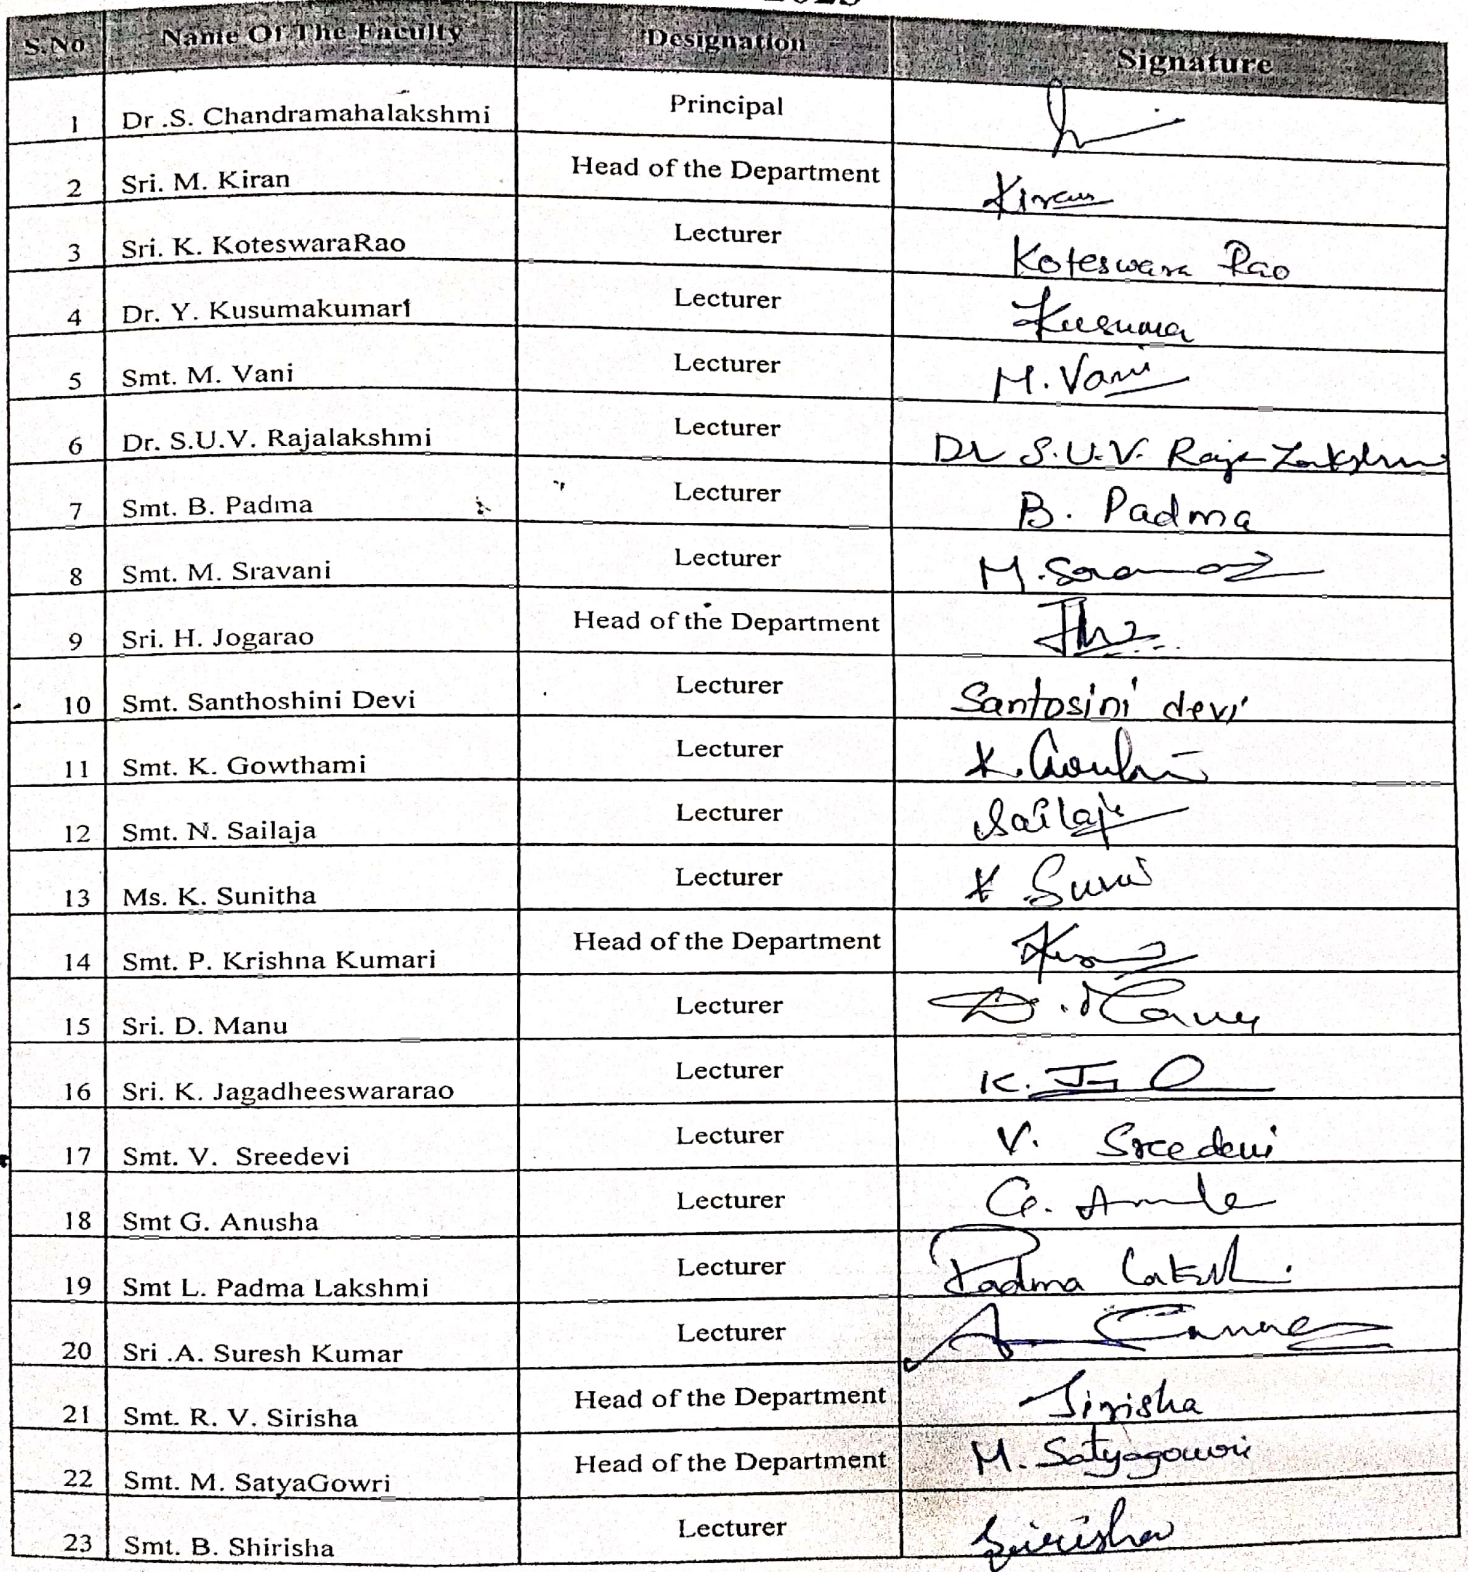 S.No Name Of The Faculty Designation Signature
1 Dr .S. Chandramahalakshmi Principal
2 Sri. M. Kiran Head of the Department Kiran
3 Sri. K. KoteswaraRao Lecturer Koteswara Rao
4 Dr. Y. Kusumakumari Lecturer Kusuma
5 Smt. M. Vani Lecturer M. Vani
6 Dr. S.U.V. Rajalakshmi Lecturer Dr S.U.V. Raja Lakshmi
7 Smt. B. Padma Lecturer B. Padma
8 Smt. M. Sravani Lecturer
9 Sri. H. Jogarao Head of the Department
10 Smt. Santhoshini Devi Lecturer Santosini devi
11 Smt. K. Gowthami Lecturer
12 Smt. N. Sailaja Lecturer Sailaja
13 Ms. K. Sunitha Lecturer
14 Smt. P. Krishna Kumari Head of the Department
15 Sri. D. Manu Lecturer D. Manu
16 Sri. K. Jagadheeswararao Lecturer
17 Smt. V. Sreedevi Lecturer V. Sreedevi
18 Smt G. Anusha Lecturer
19 Smt L. Padma Lakshmi Lecturer Padma
20 Sri .A. Suresh Kumar Lecturer
21 Smt. R. V. Sirisha Head of the Department Sirisha
22 Smt. M. SatyaGowri Head of the Department M. Satyagowri
23 Smt. B. Shirisha Lecturer Sirisha